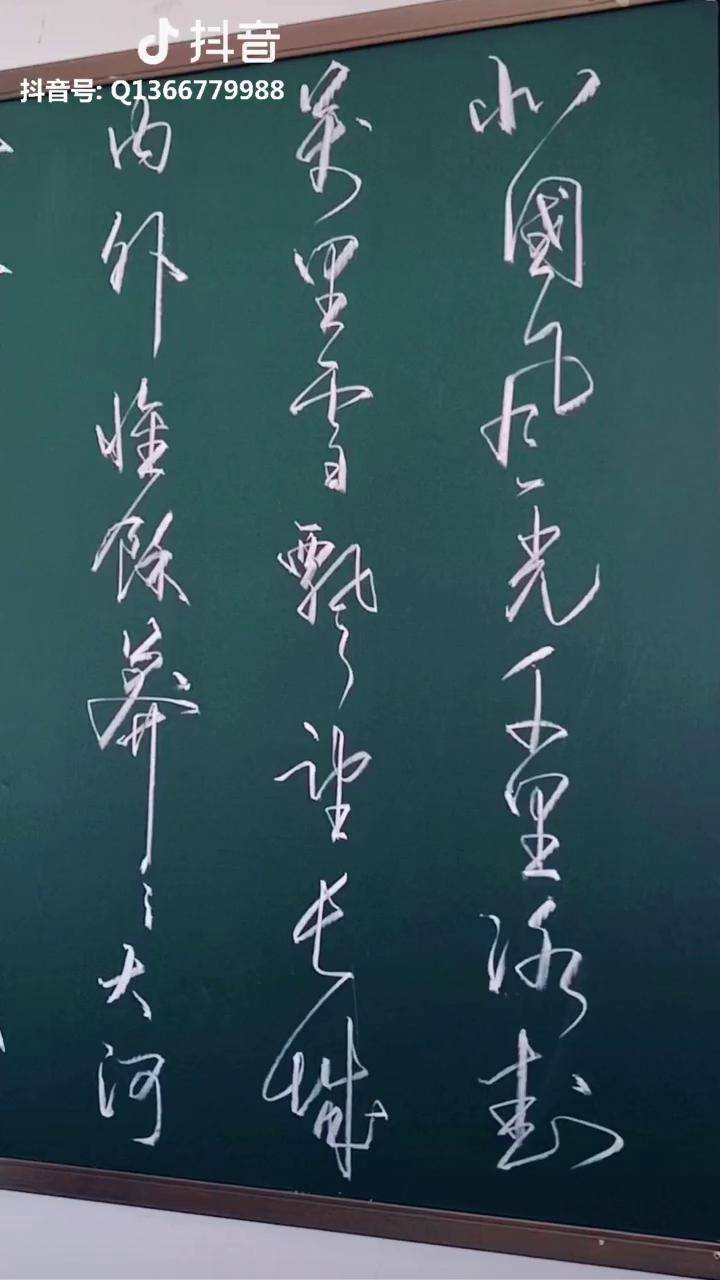 抖音
抖音号: Q1366779988
北國風光千里冰封
萬里雪飄望長城
內外惟餘莽〻大河